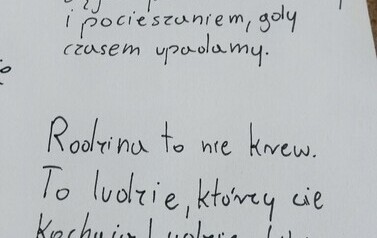 i pocieszaniem, gdy
czasem upadamy.
Rodzina to nie krew.
To ludzie, którzy cie